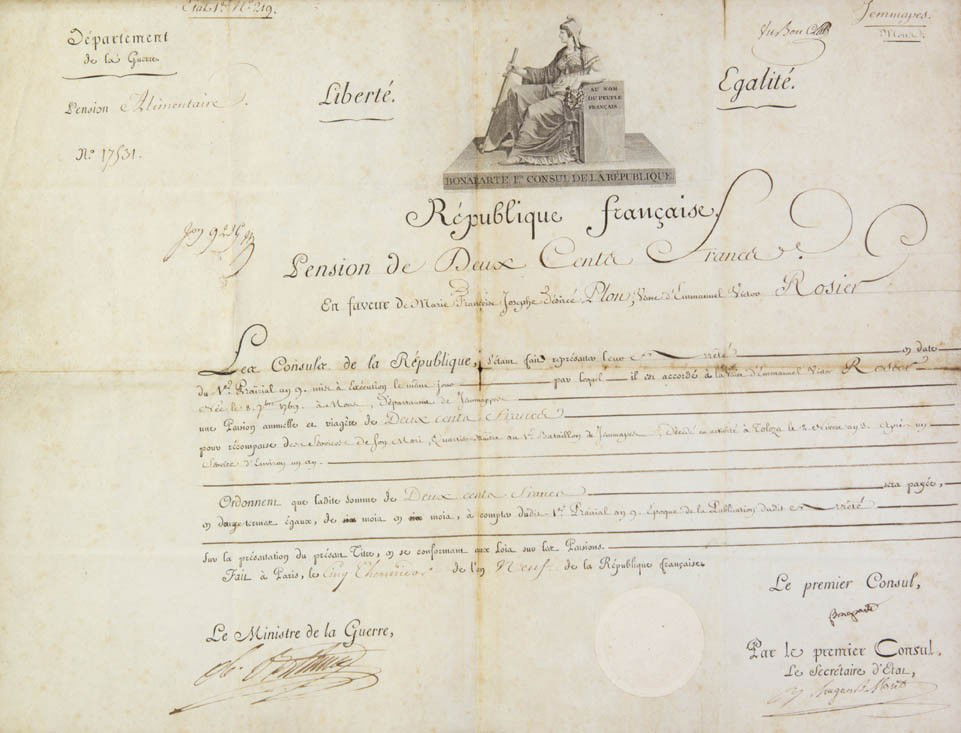 Etat 1er. No. 219.
Jemmapes.
Mons.
Département
de la Guerre.
Pension Alimentaire.
No. 17531.
Liberté.
Egalité.
AU NOM
DU PEUPLE
FRANÇAIS.
BONAPARTE 1er. CONSUL DE LA RÉPUBLIQUE
République française.
Pension de Deux Cents Francs.
En faveur de Marie Françoise Josephe Désirée Plon, Veuve d'Emmanuel Victor Rosier
Les Consuls de la République, s'étant fait représenter leur Arrêté en date
du 1er. Prairial an 9. mis à exécution le même jour par lequel il est accordé à la Veuve d'Emmanuel Victor Rosier
Née le 8. 7bre 1769. à Mons, Département de Jemmappes
une Pension annuelle et viagère de Deux cents Francs
pour récompense des Services de son Mari, Quartier-Maitre au 1er. Bataillon de Jemmapes, décédé en activité à Toloza le 2. Nivose an 3. Après un
Service d'Environ un an.
Ordonnent que ladite somme de Deux cents francs sera payée,
en termes égaux, de mois en mois, à compter dudit 1er. Prairial an 9. Epoque de la Publication dudit Arrêté
sur la présentation du présent Titre, en se conformant aux Lois sur les Pensions.
Fait à Paris, le Cinq Thermidor de l'an Neuf de la République française.
Le premier Consul,
Bonaparte
Le Ministre de la Guerre,
Par le premier Consul,
Le Secrétaire d'Etat,
Hugues B. Maret